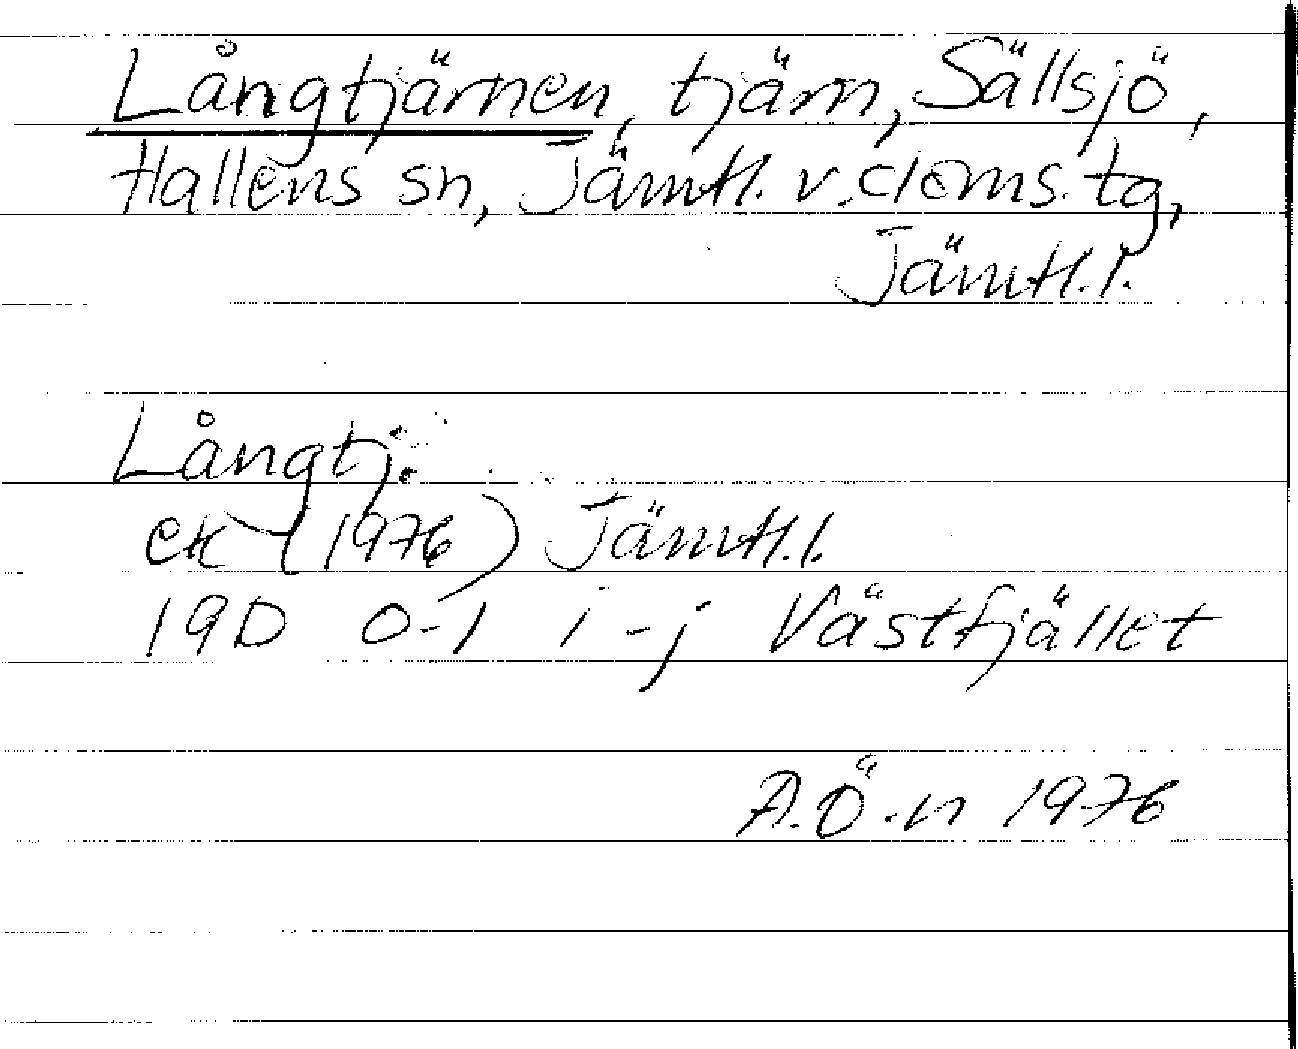 Långtjärnen, tjärn, Sällsjö,
Hallens sn, Jämtl. v. doms. tg,
Jämtl. l.
Långtj:
ek (1976) Jämtl. l.
19D 0-1 i-j Västfjället
A.Ö-n 1976